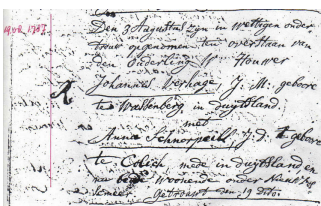 Den 3 Augustus zijn in wettigen onder
trouw opgenomen ten overstaan van
19-08-1787
den Ouderling W Houwer
Johannes Verhage J. M. geboore
te Wassenberg in duijtsland
met
Anna Schnorpeil J. D. geboore
te mede in duijtsland en
beide woonende onder
getrouwt den 19 ditto